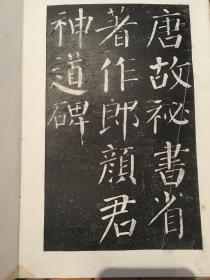 唐故祕書省
著作郎顔君
神道碑